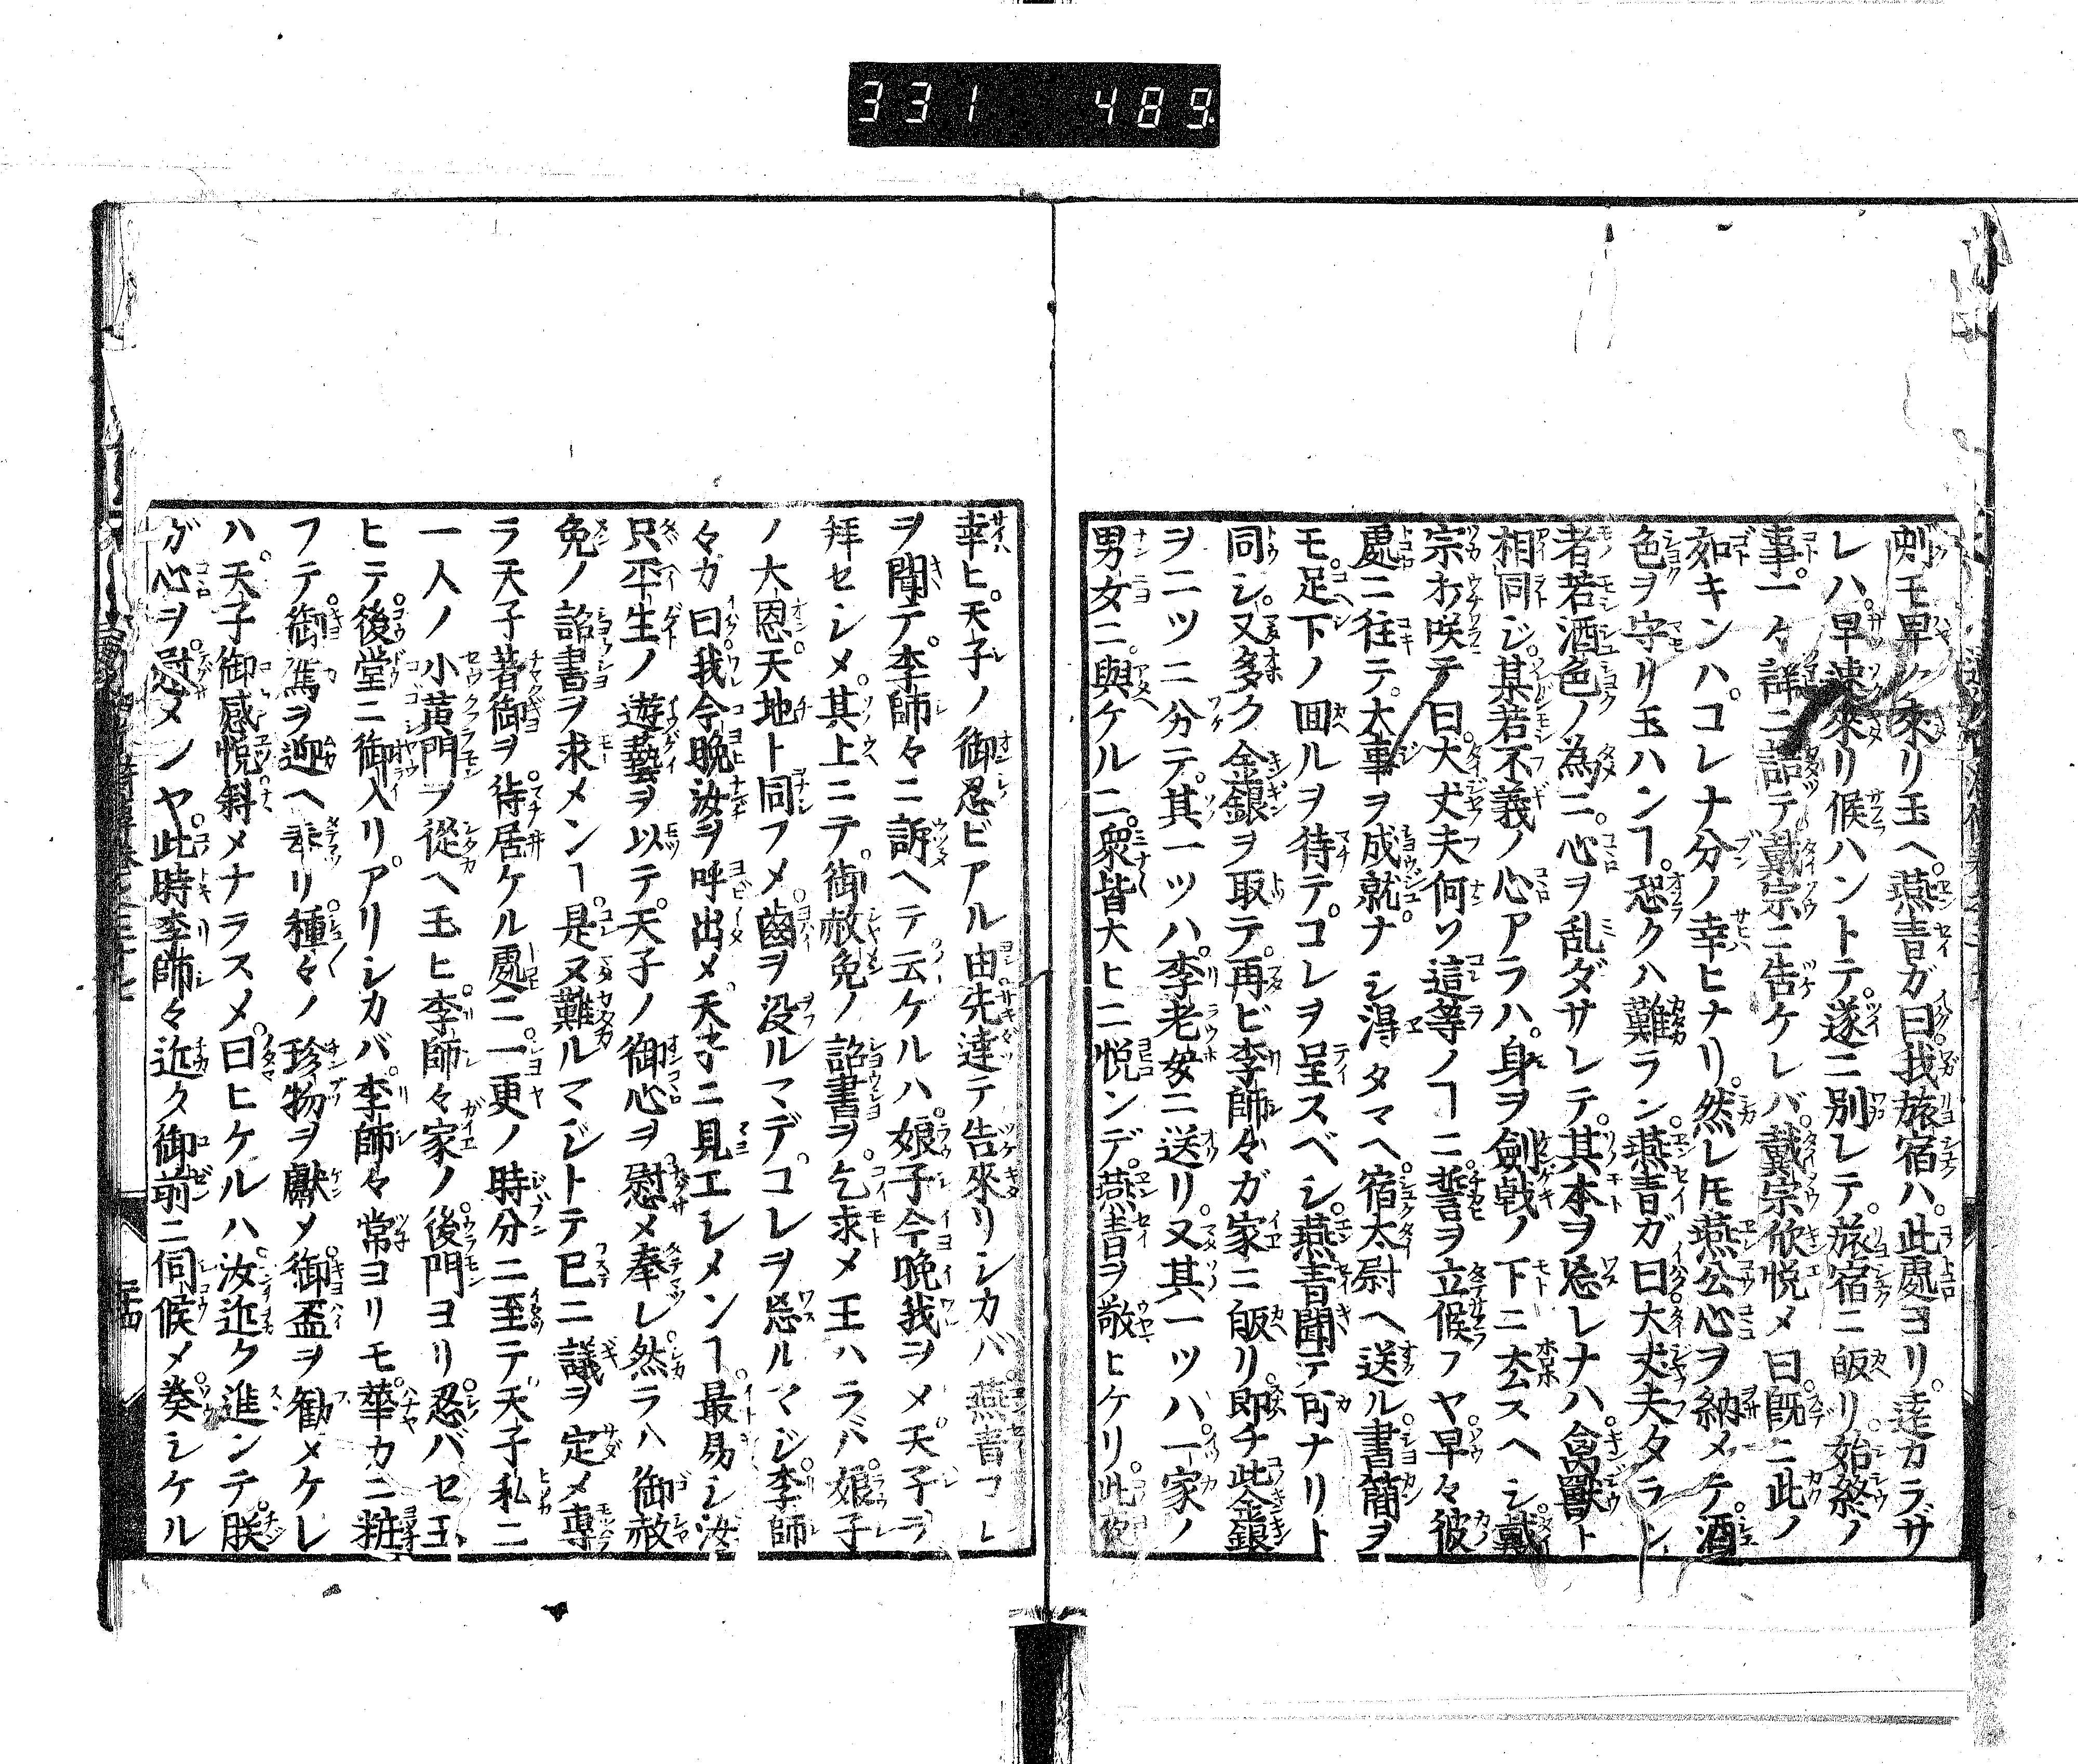 331 489
刻モ早ク來リ玉ヘ燕青ガ曰我旅宿ハ此處ヨリ遠カラザ
レハ早速來リ候ハントテ遂ニ別レテ旅宿ニ皈リ始終ノ
事一々詳ニ語テ戴宗ニ告ケレバ戴宗欣悦メ曰既ニ此ノ
如キンハコレナ分ノ幸ヒナリ然レ𪜈燕公心ヲ納メテ酒
色ヲ守リ玉ハンヿ恐クハ難ラン燕青ガ曰大丈夫タラン
者若酒色ノ為ニ心ヲ乱ダサレテ其本ヲ忘レナハ禽獸ト
相同ジ某若不義ノ心アラハ身ヲ劍戟ノ下ニ亡スヘシ戴
宗打咲テ曰大丈夫何ソ這等ノヿニ誓ヲ立候フヤ早々彼
處ニ往テ大事ヲ成就ナシ淂タマヘ宿太尉ヘ送ル書簡ヲ
モ足下ノ回ルヲ待テコレヲ呈スベシ燕青聞テ可ナリト
同シ又多ク金銀ヲ取テ再ビ李師々ガ家ニ皈リ即チ此金銀
ヲ二ツニ分テ其一ツハ李老妾ニ送リ又其一ツハ一家ノ
男女ニ與ケルニ衆皆大ヒニ悦ンデ燕青ヲ敬ヒケリ此夜
幸ヒ天子ノ御忍ビアル由先達テ告來リシカバ燕青コレ
ヲ聞テ李師々ニ訴ヘテ云ケルハ娘子今晩我ヲメ天子ヲ
拜セシメ其上ニテ御赦免ノ詔書ヲ乞求メ玉ハラバ娘子
ノ大恩天地ト同フメ齒ヲ没ルマデコレヲ忘ルマジ李師
々ガ曰我今晩汝ヲ呼出メ天子ニ見エシメンヿ最易シ汝
只平生ノ遊藝ヲ以テ天子ノ御心ヲ慰メ奉レ然ラハ御赦
免ノ詔書ヲ求メンヿ是又難ルマジトテ已ニ議ヲ定メ專
ラ天子若御ヲ待居ケル處ニ一更ノ時分ニ至テ天子私ニ
一人ノ小黃門ヲ從ヘ玉ヒ李師々家ノ後門ヨリ忍バセ玉
ヒテ後堂ニ御入リアリシカバ李師々常ヨリモ華カニ粧
フテ御駕ヲ迎ヘ奉リ種々ノ珍物ヲ獻メ御盃ヲ勧メケレ
ハ天子御感悦斜メナラスメ曰ヒケルハ汝近ク進ンテ朕
ガ心ヲ慰メンヤ此時李師々近ク御前ニ伺候メ癸シケル